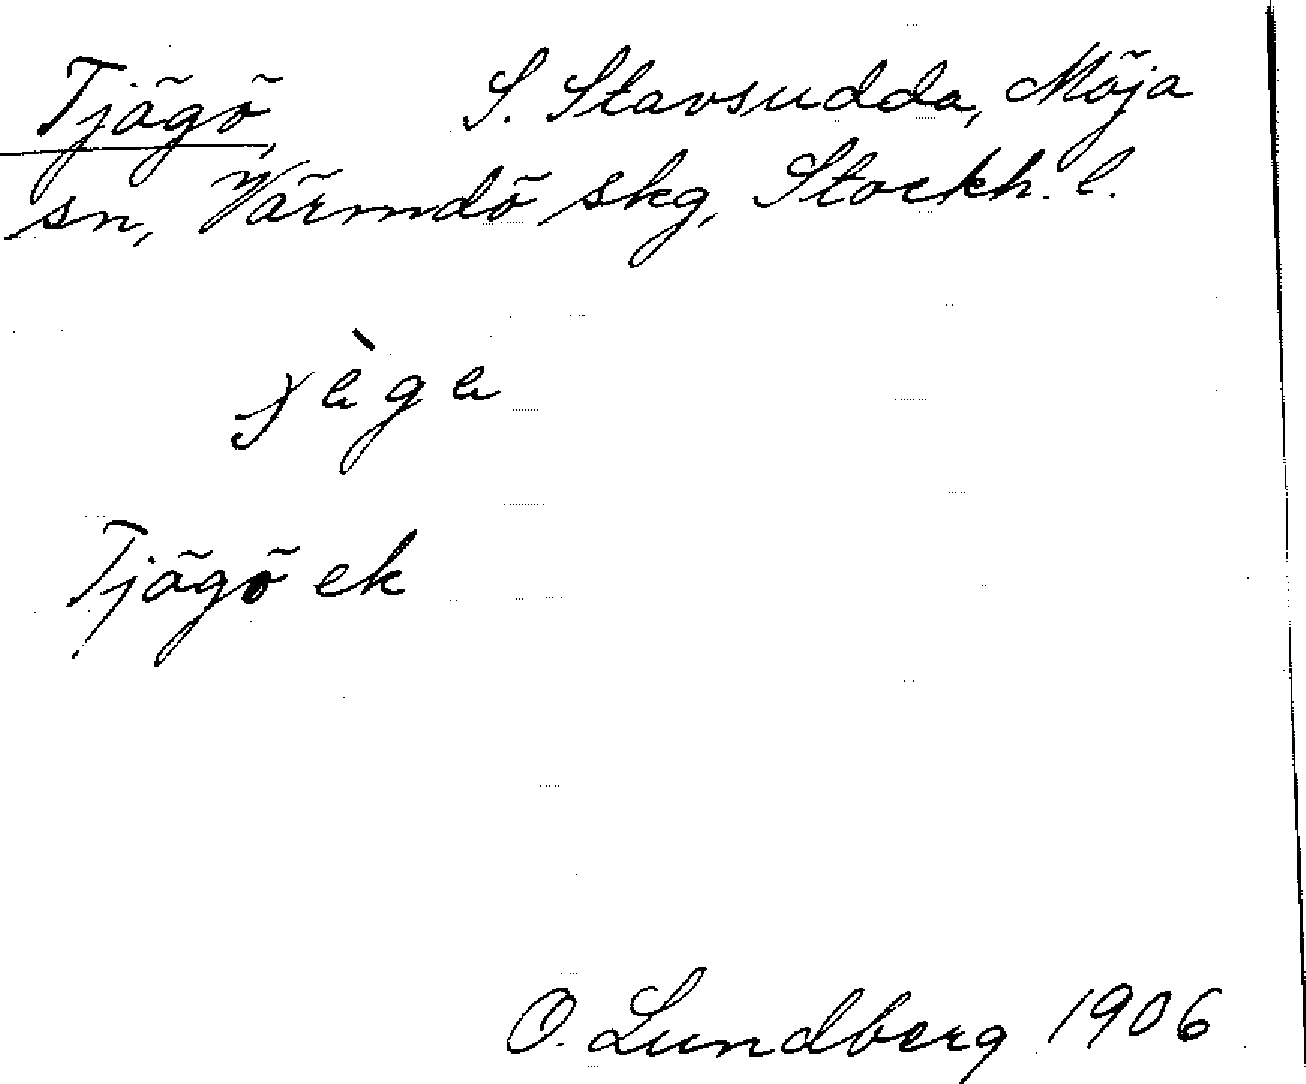 Tjägö, S. Stavsudda, Möja
sn, Värmdö skg, Stockh. l.
Tjägö ek
O. Lundberg 1906